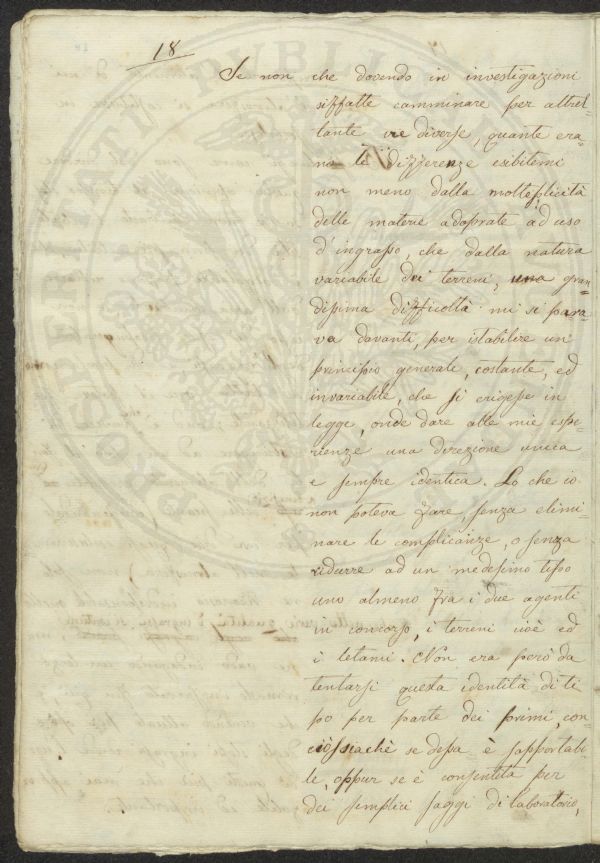 18
Se non che dovendo in investigazioni
siffatte camminare per altret
tante vie diverse, quante era-
no le differenze esibitemi
non meno dalla molteplicità
delle materie adoprate ad uso
d'ingrasso, che dalla natura
variabile dei terreni, una gran
dissima difficoltà mi si para-
va davanti, per istabilire un
principio generale, costante, ed
invariabile, che si erigesse in
legge, onde dare alle mie espe-
rienze una direzione unica
e sempre identica. Lo che io
non poteva fare, senza elimi
nare le complicanze, o senza
ridurre ad un medesimo tipo
uno almeno fra i due agenti
in concorso, i terreni cioè ed
i letami. Non era però da
tentarsi questa identità di ti
po per parte dei primi, con
ciossiachè se dessa è sopportabi-
le, oppur se è consentita per
dei semplici saggi di laboratorio,